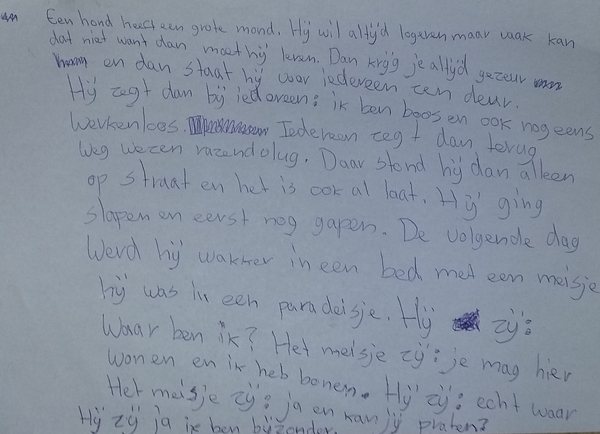 Een hond heeft een grote mond. Hij wil altijd logeren maar vaak kan
dat niet want dan moet hij leren. Dan krijg je altijd gezeur
en dan staat hij voor iedereen zen deur.
Hij zegt dan bij iedereen: ik ben boos en ook nog eens
werkenloos. Iedereen zegt dan terug
weg wezen razendvlug. Daar stond hij dan alleen
op straat en het is ook al laat. Hij ging
slapen en eerst nog gapen. De volgende dag
werd hij wakker in een bed met een meisje
hij was in een paradeisje. Hij zij:
Waar ben ik? Het meisje zij: je mag hier
wonen en ik heb bonen. Hij zij: echt waar
Het meisje zij: ja en kan jij praten?
Hij zij ja ik ben bijzonder.